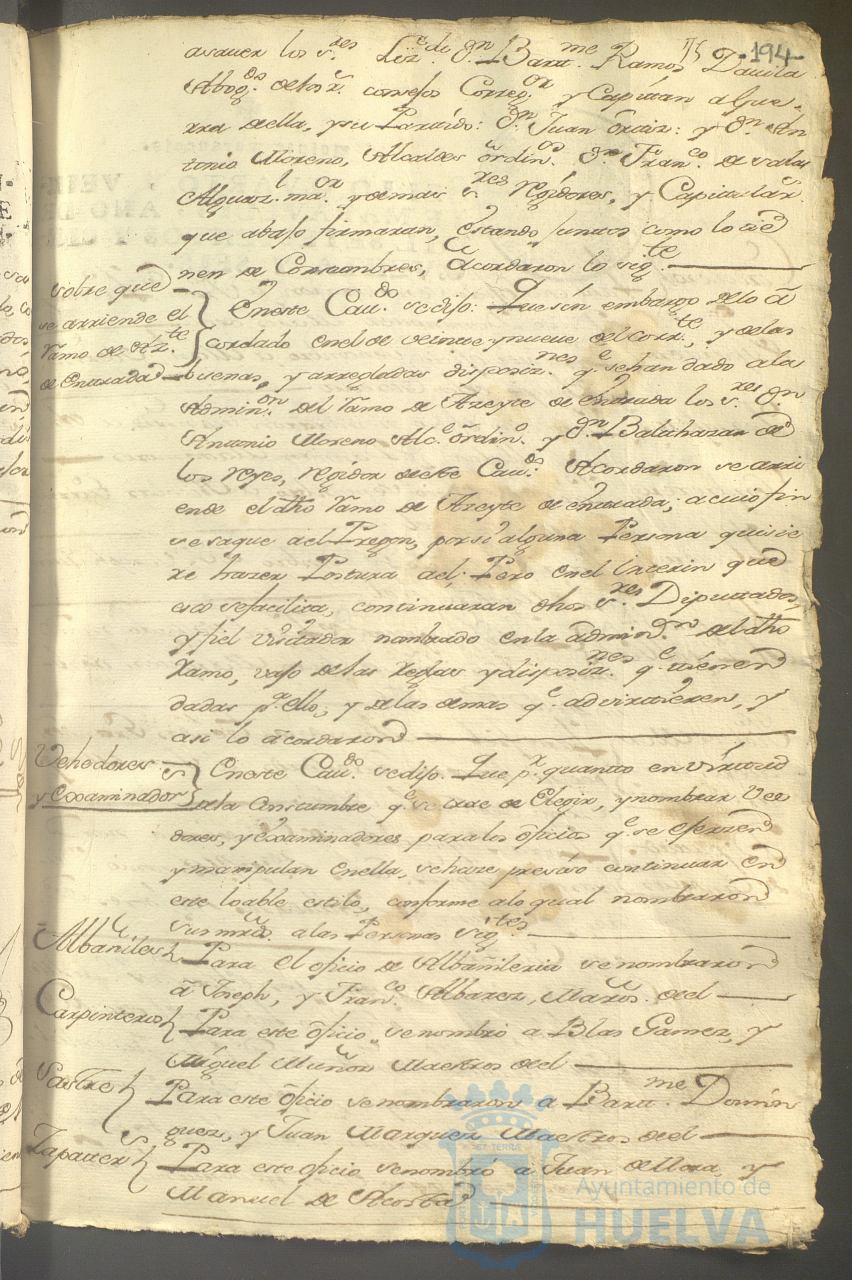 194
asauer los s.res Liz.do d.n Bart.me Ramos Dauila
Abog.do de los r.s consejos Correg.or y Capitan a Gue-
rra della, y su Partido: d.n Juan Ortiz: y d.n An
tonio Moreno, Alcaldes ordin.os d.n Fran.co de salas
Alguaz.l ma.or y demas s.res regidores, y Capitulares
que abajo firmaran, estando juntos como lo tie
nen de Constumbres, Acordaron lo sig.te
sobre que
se arriende el
Ramo de Az.te
de entrada
En este Cau.do se dijo: Que sin embargo de lo a
cordado en el de veinte y nueue del corr.te, y de las
buenas, y arregladas disposiz.nes q.e se han dado a la
Admin.on del Ramo de Azeyte de entrada los s.res d.n
Antonio Moreno Alc.e ordin.o y d.n Balthazar de
los reyes, regidor de este Cau.do Acordaron se arri
ende el dho Ramo de Azeyte de entrada; a cuio fin
se saque a el Pregon, por si alguna Persona quisie
re hazer Postura a el; Pero en el interin que
esto se facilita, continuaran dhos s.res Diputados,
y fiel visitador nombrado en la admin.on del dho
Ramo, vajo de las reglas y disposiz.nes q.e tienen
dadas p.a ello, y de las demas q.e adviertieren, y
asi lo acordaron
Vehedores
y Examinador.s
En este Cau.do se dijo. Que p.r quanto en virtud
a la Constumbre q.e se trae de Elegir, y nombrar Vee
dores, y examinadores para los oficios q.e se ejerzen
y manipulan en ella, se haze preciso continuar en
este loable estilo, conforme a lo qual nombraron
sus mrds. a las Personas sig.tes
Albañiles
Para el oficio de Albañileria se nombraron
a Joseph, y Fran.co Albarez, Maros. de el
Carpinteros
Para este oficio se nombró a Blas Gamez, y
Miguel Muñoz Maestros de el
Sastre
Para este oficio se nombraron a Bart.me Domin
guez, y Juan Marquez Maestros de el
Zapater.s
Para este oficio se nombró a Juan de Mora, y
Manuel de Acosta
SET TERRA
Ayuntamiento de
HUELVA